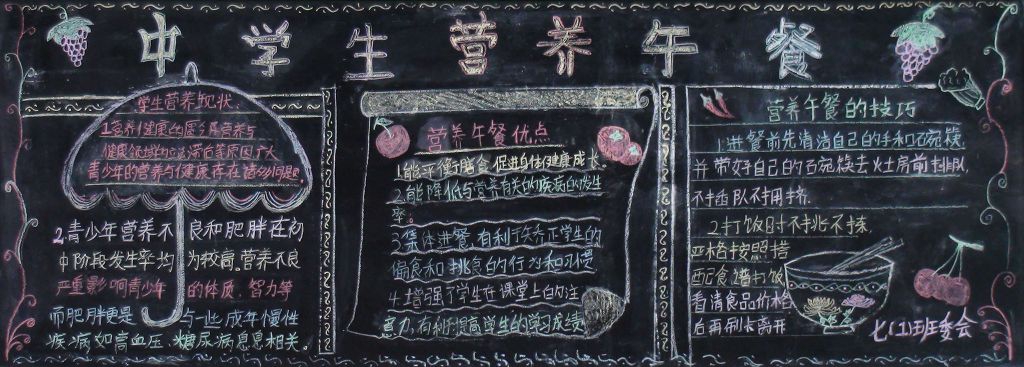 中学生营养午餐
学生营养现状:
1.营养健康的意识与营养与
健康领域的滞后等原因,广大
青少年的营养与健康存在诸多问题.
2.青少年营养不良和肥胖在初
中阶段发生率均为较高.营养不良
严重影响青少年的体质、智力等
而肥胖更是与一些成年慢性
疾病如高血压、糖尿病息息相关.
营养午餐优点
1.能平衡膳食,促进身体健康成长.
2.能降低与营养有关的疾病的发生
率.
3.集体进餐,有利于矫正学生的
偏食和挑食的行为和习惯
4.增强了学生在课堂上的注
意力,有利于提高学生的学习成绩
营养午餐的技巧
1.进餐前先清洁自己的手和碗筷,
并带好自己的碗筷去火房前排队,
不插队不拥挤.
2.打饭时不挑不拣,
严格按照搭
配食谱打饭
看清食品价格
后再刷卡离开
七(1)班委会